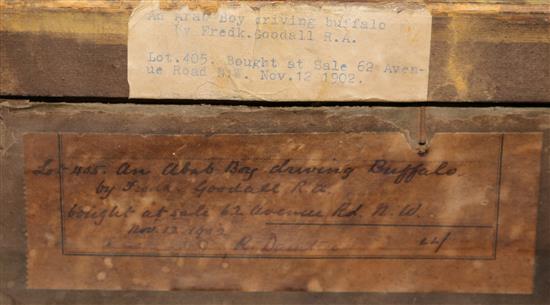 An Arab Boy driving buffalo
by Fredk.Goodall R.A.
Lot.405. Bought at Sale 62 Aven-
ue Road N.W. Nov.12 1902.
Lot 405. An Abab Boy driving Buffalo
by Goodall R A
bought at sale 62 Avenue Rd. N. W.
Nov. 12. 1902
R.